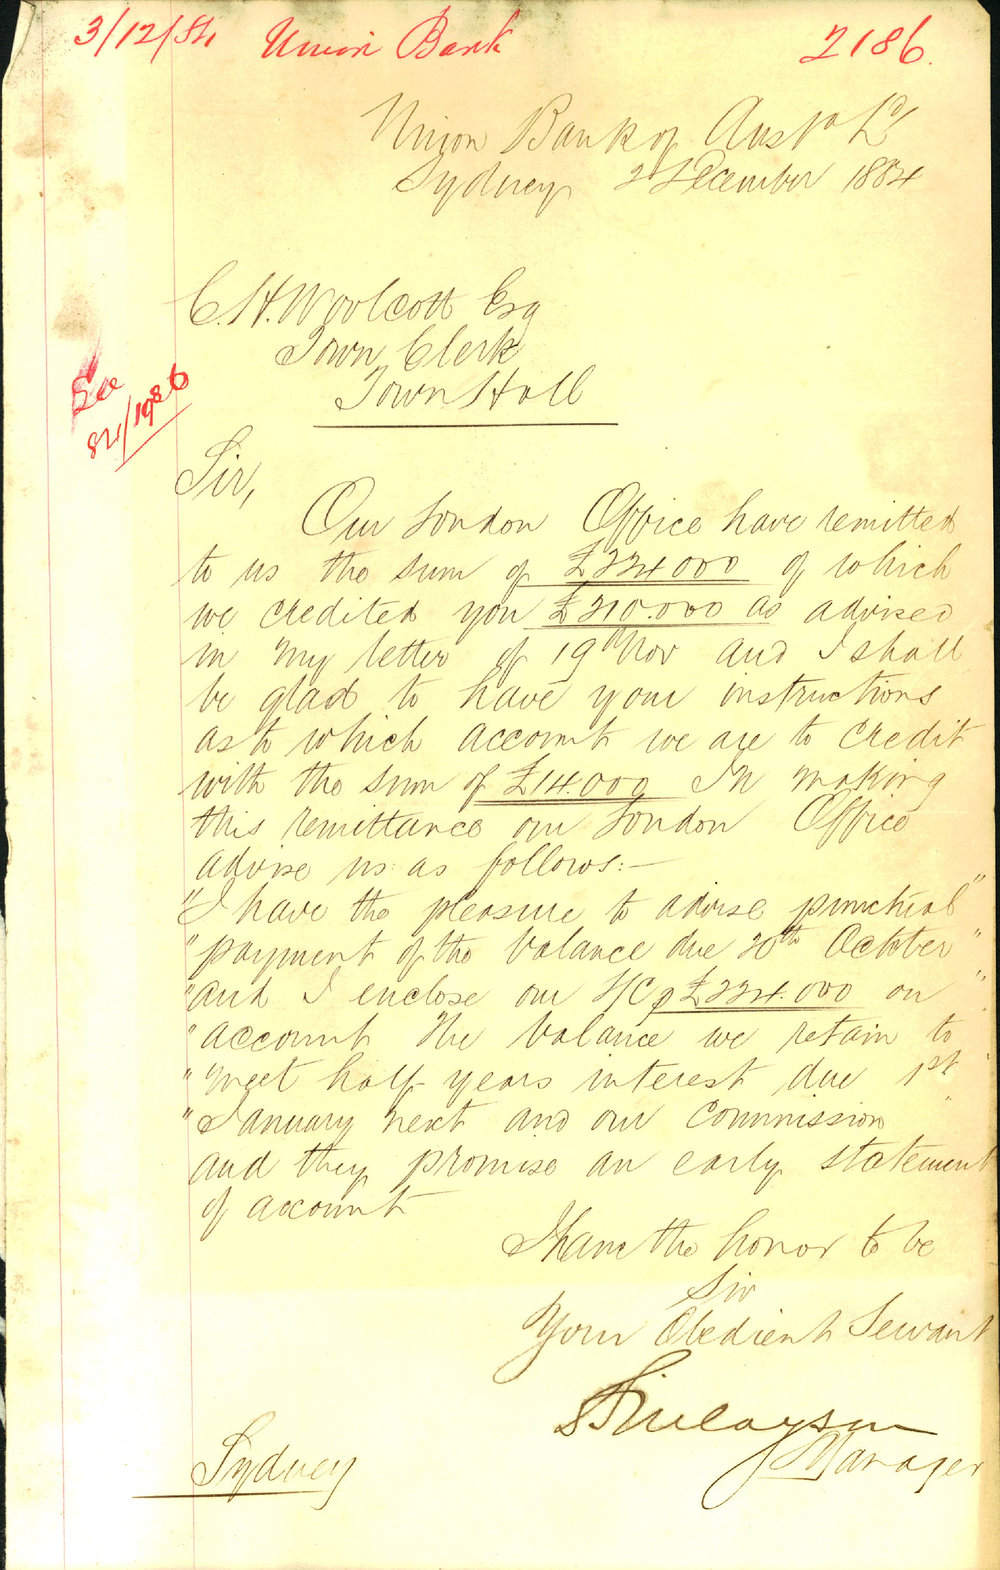 3/12/84 Union Bank 2186.
Union Bank of Aust'a Ld
Sydney 2 December 1884
C.H. Woolcott Esq
Town Clerk
Town Hall
See
84/1986
Sir,
Our London Office have remitted
to us the sum of £224000 of which
we credited you £210.000 as advised
in my letter of 19th Nov and I shall
be glad to have your instructions
as to which account we are to credit
with the sum of £14.000 In making
this remittance our London Office
advise us as follows:-
"I have the pleasure to advise punctual"
"payment of the balance due 20th October"
"and I enclose our £224.000 on"
"account The balance we retain to"
"meet half years interest due 1st"
"January next and our Commission"
and they promise an early statement
of account
I have the honor to be
Sir
Your Obedient Servant
Finlayson
Manager
Sydney